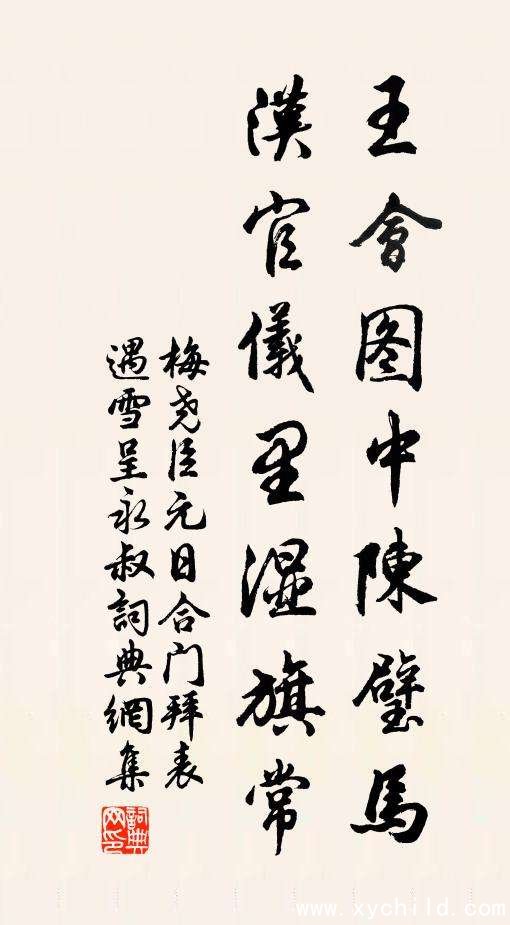 王會图中陳璧馬
漢官儀里濕旗常
梅尧臣元日合门拜表
遇雪呈永叔詞典網集
詞典
网印
www.xychild.com